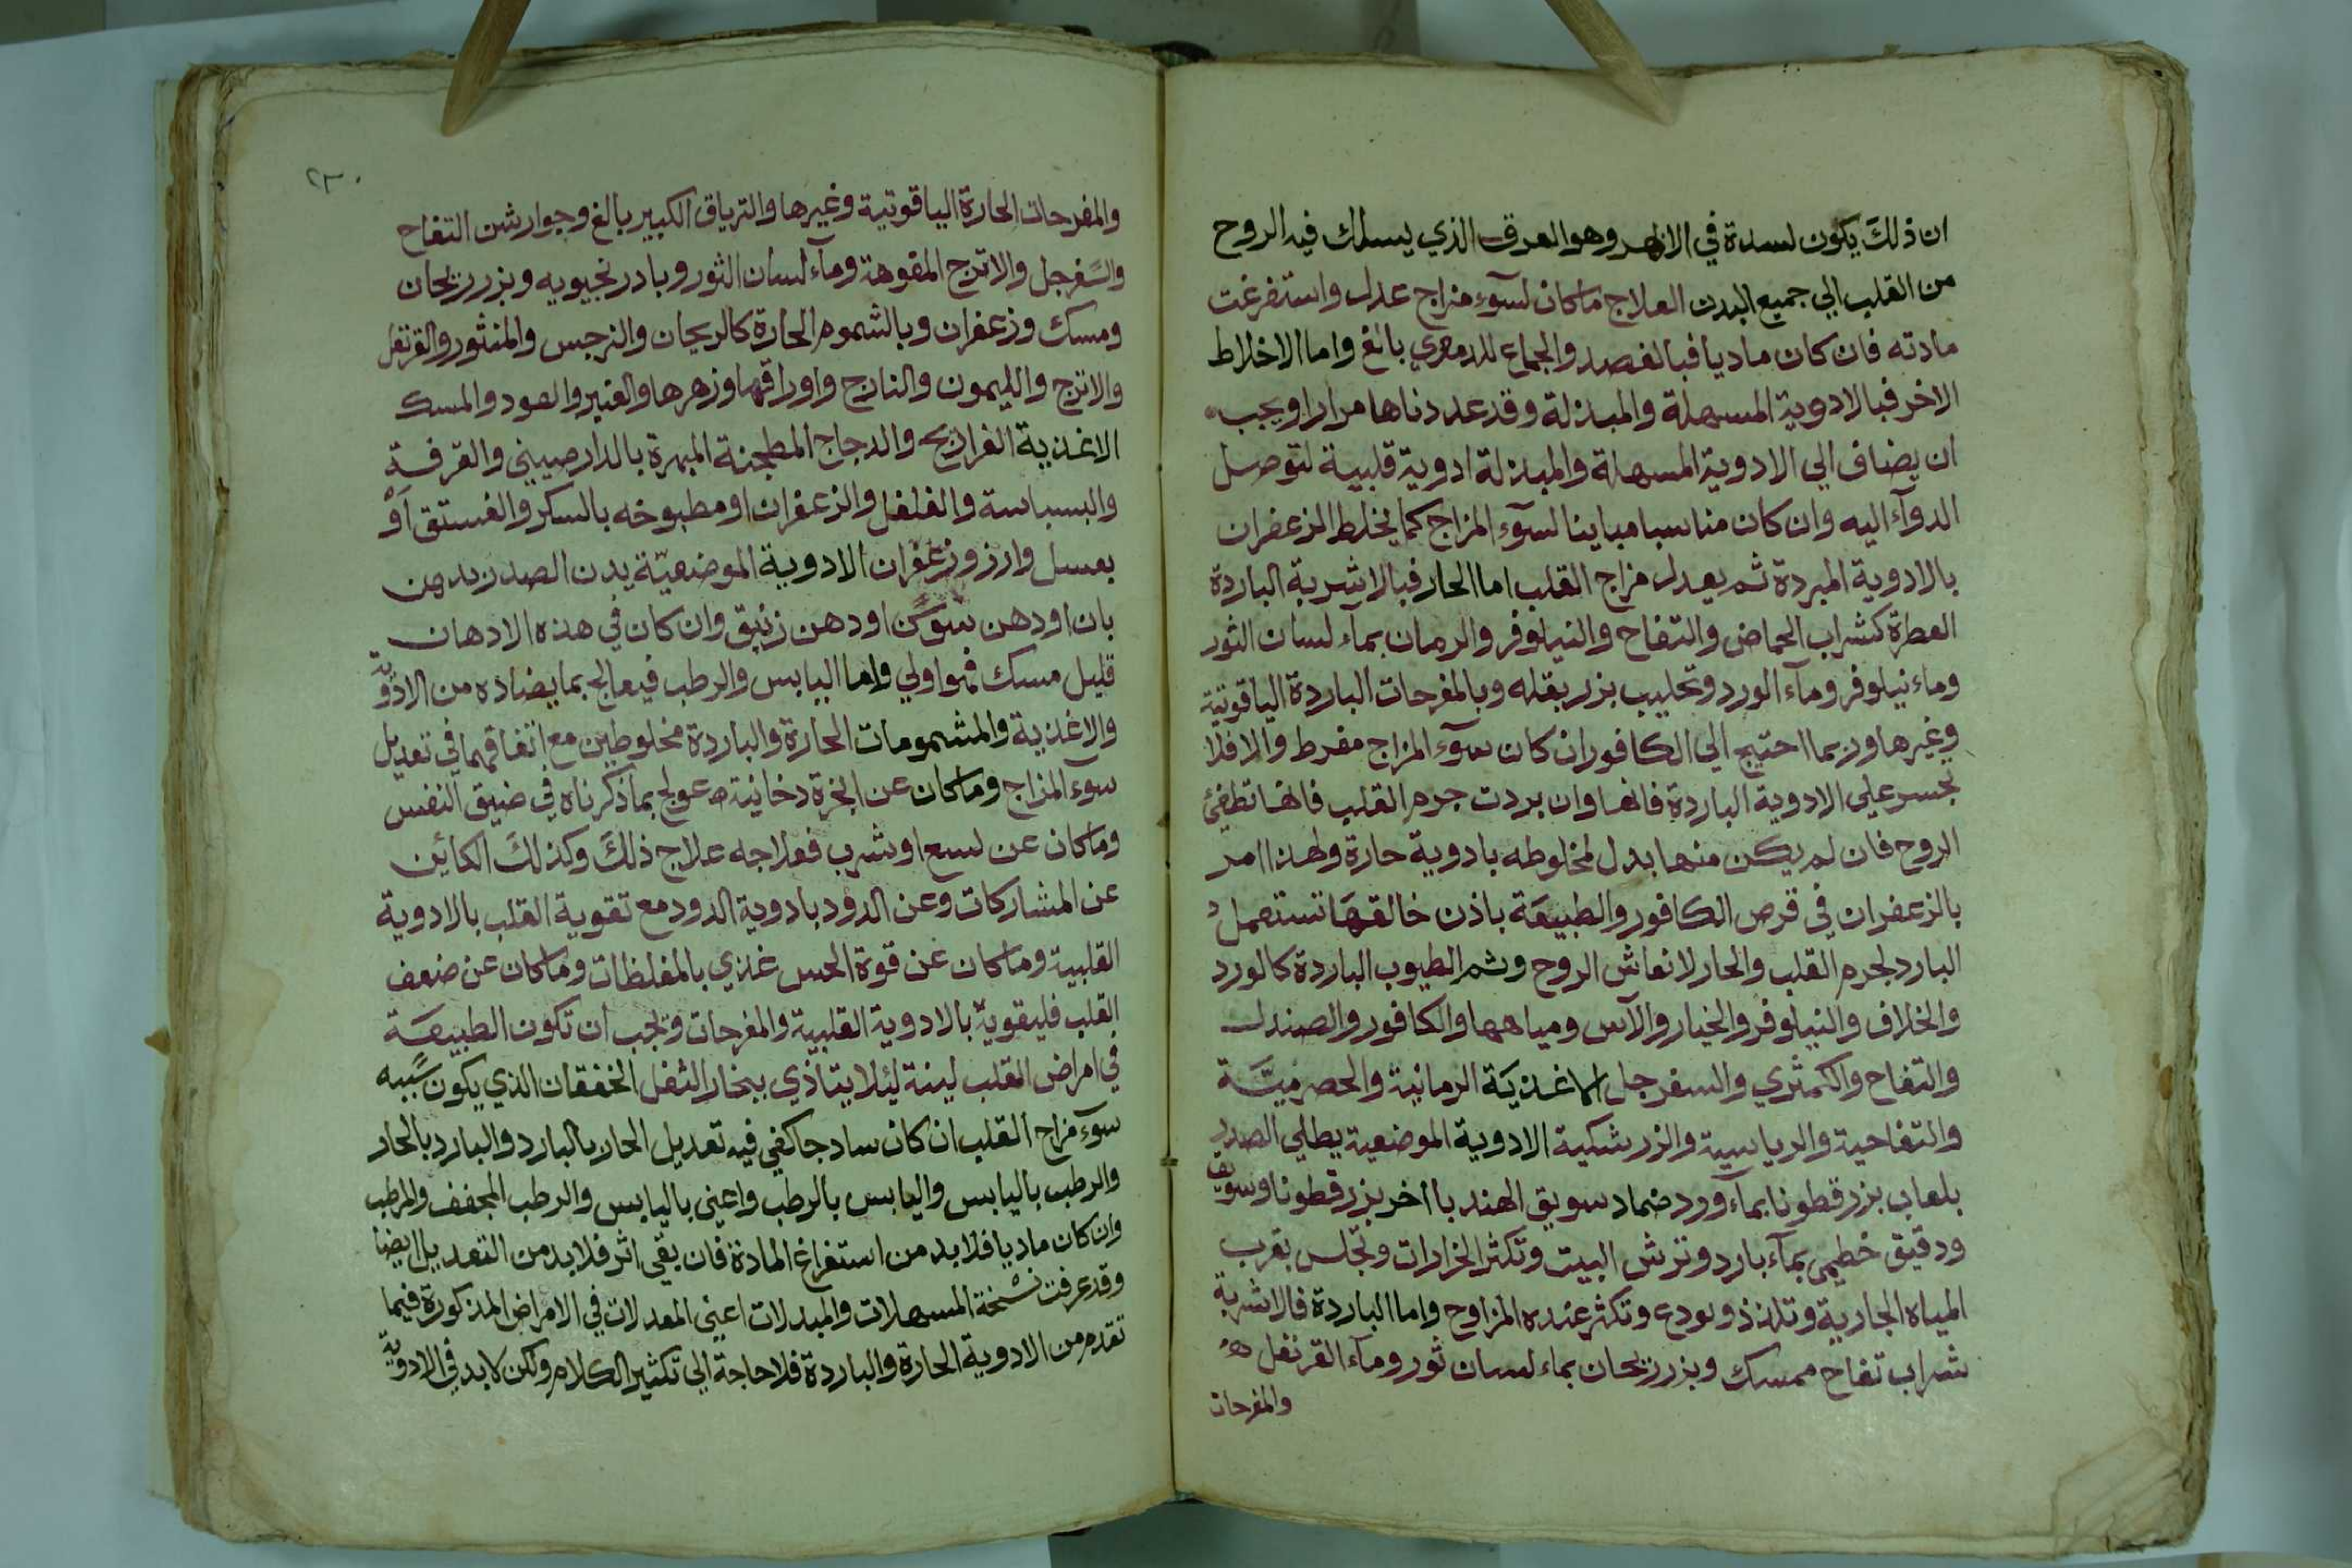 ان ذلك يكون لسدة في الابهر وهو العرق الذي يسلك فيه الروح
من القلب الي جميع البدن العلاج ماكان لسوء مزاج عدل واستفرغت
مادته فان كان ماديا فبالفصد والجماع للدموي بالغ واما الاخلاط
الاخر فبالادوية المسهلة والمبدلة وقد عددناها مرارا ويجب
ان يضاف الي الادوية المسهلة والمبدلة ادوية قلبية لتوصل
الدوآء اليه وان كان مناسبا مباينا لسوٓء المزاج كما يخلط الزعفران
بالادوية المبردة ثم يعدل مزاج القلب اما الحار فبالاشربة الباردة
العطرة كشراب الحماض والتفاح والنيلوفر والرمان بمآء لسان الثور
وماء نيلوفر ومآء الورد وتحليب بزر بقله وبالمفرحات الباردة الياقوتية
وغيرها وربما احتيج الي الكافور ان كان سوٓء المزاج مفرط والا فلا
تجسر علي الادوية الباردة فانها وان بردت جرم القلب فانها تطفئ
الروح فان لم يكن منها بدل لمخلوطه بادوية حارة ولهذا امر
بالزعفران في قرص الكافور والطبيعة باذن خالقها تستعمل
البارد لجرم القلب والحار لانعاش الروح وشم الطيوب الباردة كالورد
والخلاف والنيلوفر والخيار والآس ومياهها والكافور والصندل
والتفاح والكمثري والسفرجل الاغذية الرمانية والحصرميّة
والتفاحية والريباسية والزرشكية الادوية الموضعية يطلي الصدر
بلعاب بزر قطونا بمآء ورد ضماد سويق الهندبا اخر بزر قطونا وسويق
ودقيق خطيمي بمآء بارد وترش البيت وتكثر الخرارات وتجلس بقرب
المياه الجارية وتلذذ وتودع وتكثر عنده المراوح واما الباردة فالاشربة
شراب تفاح ممسك وبزر ريحان بماء لسان ثور ومآء القرنفل
والمفرحات
٢٣٠
والمفرحات الحارة الياقوتية وغيرها والترياق الكبير بالغ وجوارشن التفاح
والسفرجل والاترج المفوهة ومآء لسان الثور وبادرنجبويه وبزر ريحان
ومسك وزعفران وبالشموم الحارة كالريحان والنرجس والمنثور والقرنفل
والاترج والليمون والنارنج واوراقها وزهرها والعنبر والعود والمسك
الاغذية الفراريج والدجاج المطجنة المبزرة بالدارصيني والقرفة
والبسباسة والفلفل والزعفران او مطبوخه بالسكر والفستق اَوْ
بعسل وارز وزعفران الادوية الموضعيّة يدهن الصدر بدهن
بان او دهن سوسن او دهن زنبق وان كان في هذه الادهان
قليل مسك فهو اولي واما اليابس والرطب فيعالج بما يضاده من الادوية
والاغذية والمشمومات الحارة والباردة مخلوطين مع اتفاقهما في تعديل
سوء المزاج وماكان عن ابخرة دخانية عولج بما ذكرناه في ضيق النفس
وماكان عن لسع او شرب فعلاجه علاج ذلك وكذلك الكائن
عن المشاركات وعن الدود بادوية الدود مع تقوية القلب بالادوية
القلبية وماكان عن قوة الحس غذي بالمغلظات وماكان عن ضعف
القلب فليقوية بالادوية القلبية والمفرحات وتجب ان تكون الطبيعة
في امراض القلب لينة لئلا يتاذي ببخار الثفل الخفقان الذي يكون سببه
سوٓء مزاج القلب ان كان ساد جا كفي فيه تعديل الحار بالبارد والبارد بالحار
والرطب باليابس واليابس بالرطب واعني باليابس والرطب المجفف والمرطب
وان كان ماديا فلا بد من استفراغ المادة فان بقي اثر فلا بد من التعديل ايضا
وقد عرفت نسخة المسهلات والمبدلات اعني المعدلات في الامراض المذكورة فيما
تقدم من الادوية الحارة والباردة فلا حاجة الي تكثير الكلام ولكن لا بد في الادوية